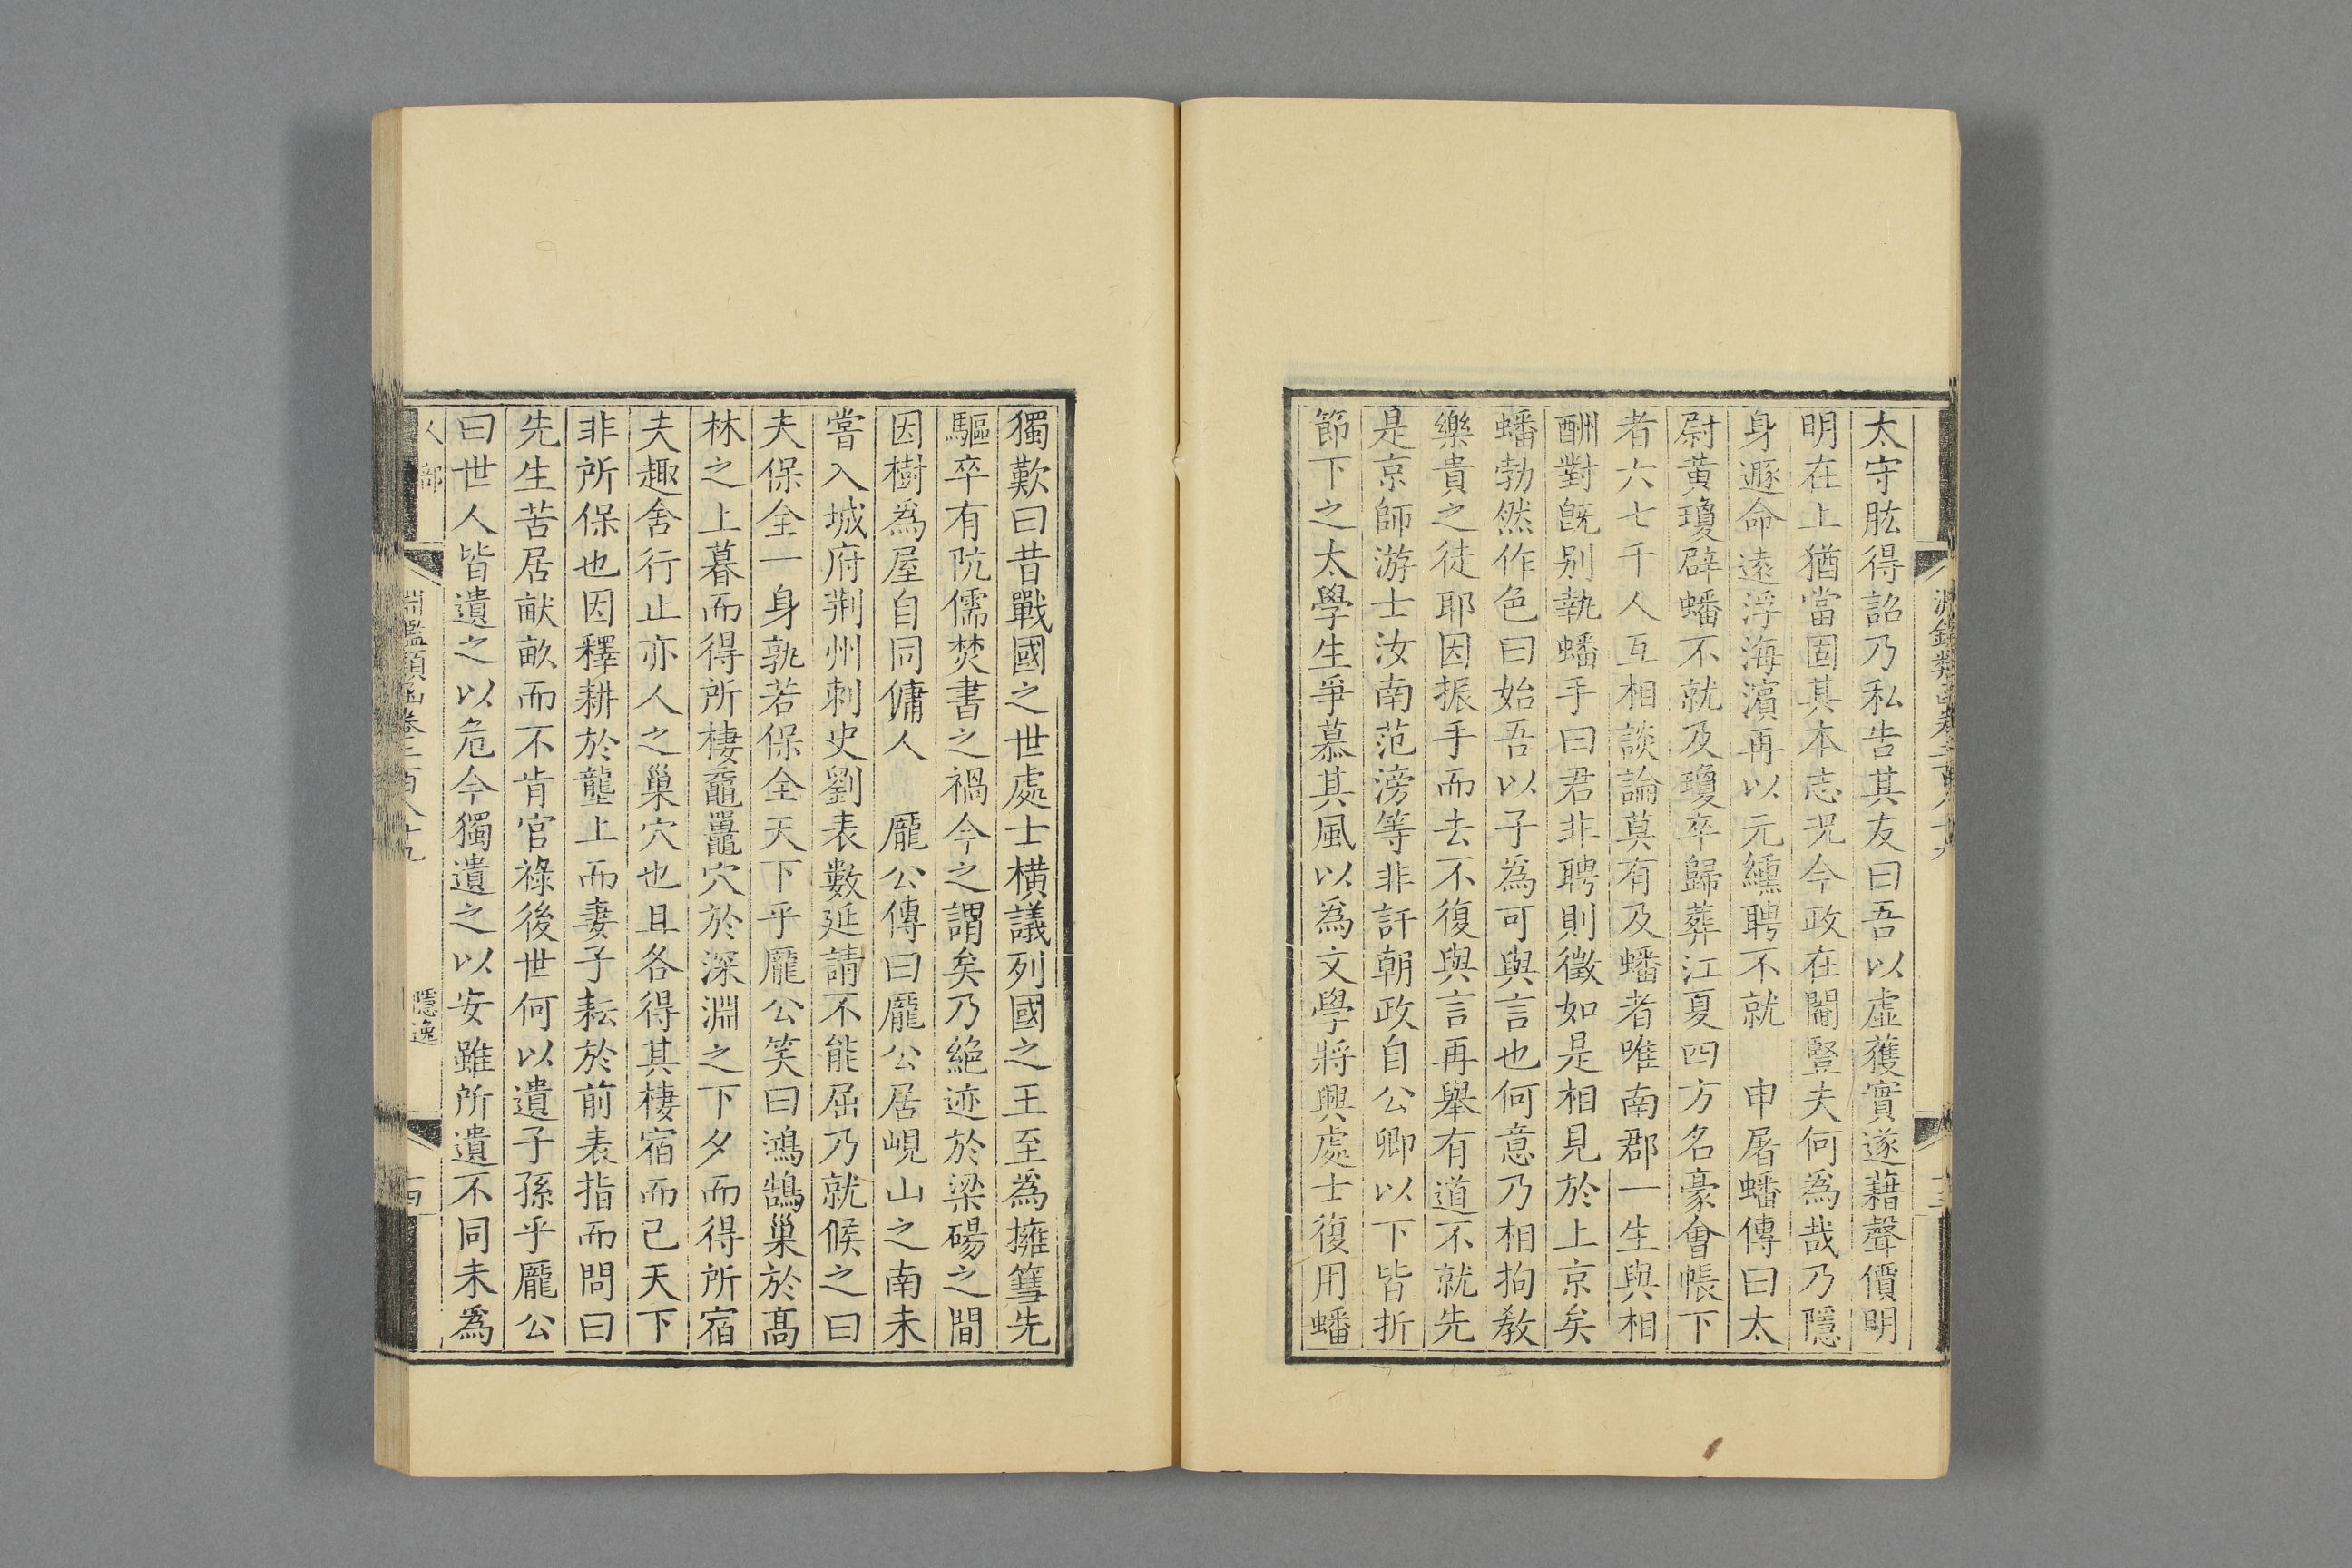 太守肱得詔乃私告其友曰吾以虛獲實遂藉聲價明
明在上猶當固其本志況今政在閹豎夫何為哉乃隱
身遯命遠浮海濱再以元纁聘不就　申屠蟠傳曰太
尉黃瓊辟蟠不就及瓊卒歸葬江夏四方名豪會帳下
者六七千人互相談論莫有及蟠者唯南郡一生與相
酬對旣別執蟠手曰君非聘則徵如是相見於上京矣
蟠勃然作色曰始吾以子為可與言也何意乃相拘敎
樂貴之徒耶因振手而去不復與言再舉有道不就先
是京師游士汝南范滂等非訐朝政自公卿以下皆折
節下之太學生爭慕其風以為文學將興處士復用蟠
獨歎曰昔戰國之世處士橫議列國之王至為擁篲先
驅卒有阬儒焚書之禍今之謂矣乃絕迹於梁碭之間
因樹為屋自同傭人　龐公傳曰龐公居峴山之南未
嘗入城府荆州刺史劉表數延請不能屈乃就候之曰
夫保全一身孰若保全天下乎龐公笑曰鴻鵠巢於髙
林之上暮而得所棲黿鼉穴於深淵之下夕而得所宿
夫趣舍行止亦人之巢穴也且各得其棲宿而已天下
非所保也因釋耕於壟上而妻子耘於前表指而問曰
先生苦居畎畝而不肯官祿後世何以遺子孫乎龐公
曰世人皆遺之以危今獨遺之以安雖所遺不同未為
人部　淵鑑類函卷二百八十九　隱逸